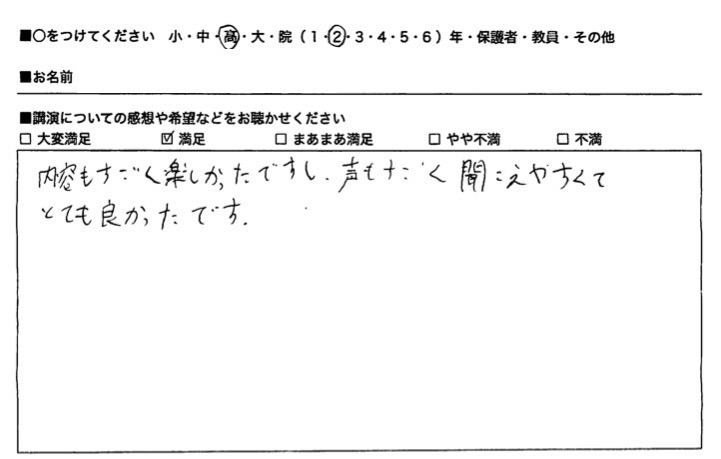 ■○をつけてください 小・中・高・大・院（1・2・3・4・5・6）年・保護者・教員・その他
■お名前
■講演についての感想や希望などをお聴かせください
□ 大変満足 ☑ 満足 □ まあまあ満足 □ やや不満 □ 不満
内容もすごく楽しかったですし、声もすごく聞こえやすくて
とても良かったです。